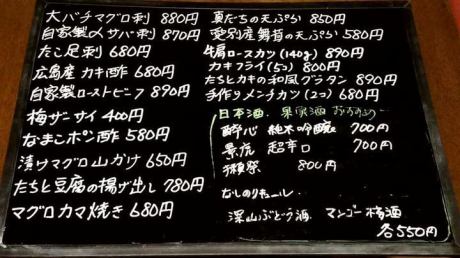 大バチマグロ刺 880円
自家製〆サバ刺 870円
たこ足刺 680円
広島産 カキ酢 680円
自家製ローストビーフ 890円
梅ザーサイ 400円
なまこポン酢 580円
漬けマグロ山かけ 650円
たちと豆腐の揚げ出し 780円
マグロカマ焼き 680円
真だちの天ぷら 850円
愛別産 舞茸の天ぷら 580円
牛肩ロースカツ (140g) 890円
カキフライ (5コ) 800円
たちとカキの和風グラタン 890円
手作りメンチカツ (2コ) 680円
日本酒、果実酒 おすすめ
酔心 純米吟醸 700円
景虎 超辛口 700円
獺祭 800円
なしのリキュール
深山ぶどう酒 マンゴー梅酒
各550円